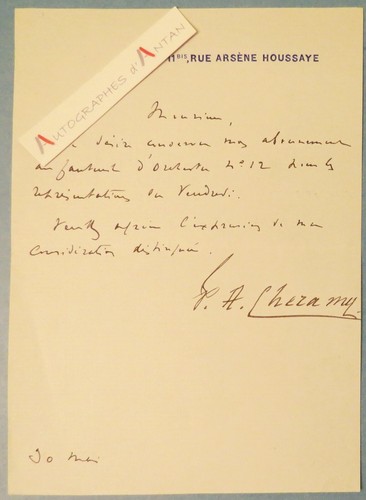 AUTOGRAPHES d'ANTAN
11BIS, RUE ARSÈNE HOUSSAYE
Monsieur,
désire conserver mon abonnement
au fauteuil d'Orchestre N° 12 pour les
représentations du Vendredi.
Veuillez agréer l'expression de ma
considération distinguée.
P. A. Cheramy
30 Mai